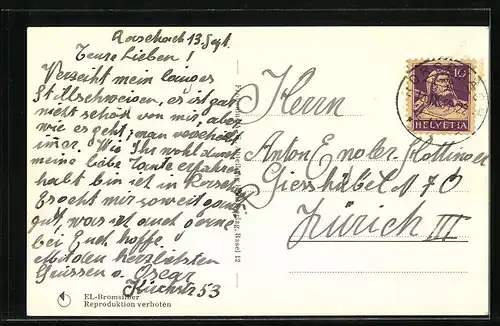 Rorschach 13. Sept.
Teure Lieben!
Verzeiht mein langes
Stillschweigen, es ist gar
nicht schön von mir, aber
wie es geht, man
immer. Wie Ihr wohl durch
meine liebe Tante erfahren
halt bin ich in Rorschach
Es geht mir soweit ganz
gut, was ich auch gerne
bei Euch hoffe.
Mit den herzlichsten
Grüssen v. Oscar
Kirchstr 53
EL-Bromsilber
Reproduktion verboten
Basel 12
10
HELVETIA
Herrn
Anton Engler
Giesshübel 70
Zürich III